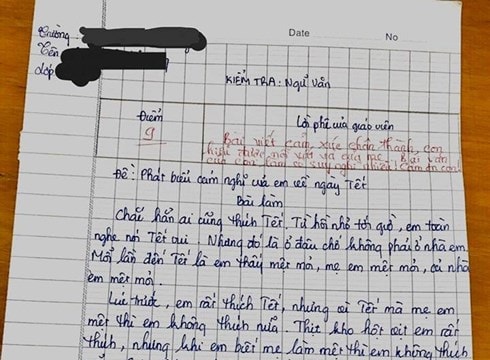 Date No
Trường
Tên
Lớp
KIỂM TRA: NGỮ VĂN
Điểm Lời phê của giáo viên
9 Bài viết cảm xúc chân thành, con
hiểu được nỗi vất vả của mẹ. Bài văn
của con làm cô suy nghĩ nhiều! Cảm ơn con!
Đề: Phát biểu cảm nghĩ của em về ngày Tết
Bài làm
Chắc hẳn ai cũng thích Tết. Từ hồi nhỏ tới giờ, em toàn
nghe nói Tết vui. Nhưng đó là ở đâu chứ không phải ở nhà em.
Mỗi lần đến Tết là em thấy mệt mỏi, mẹ em mệt mỏi, cả nhà
em mệt mỏi.
Lúc trước, em rất thích Tết, nhưng vì Tết mà mẹ em
mệt thì em không thích nữa. Thịt kho hột vịt em rất
thích, nhưng khi em biết mẹ làm mệt thì em không thích